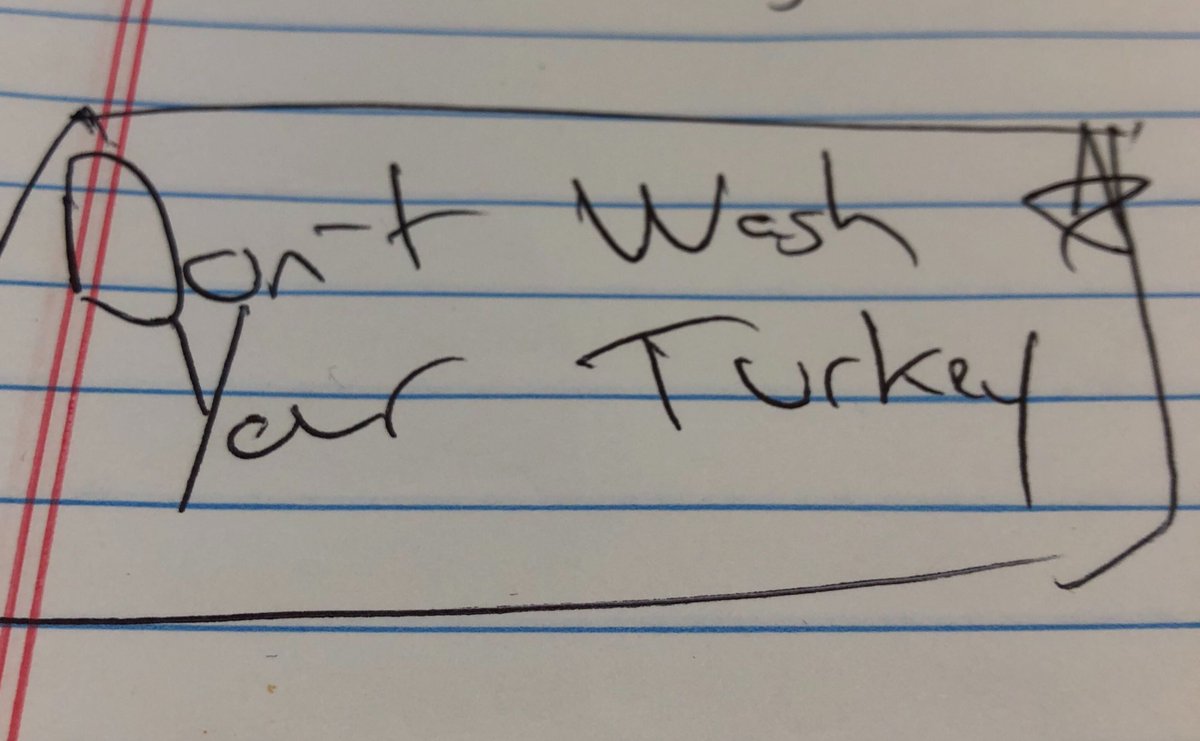 Don't Wash
Your Turkey